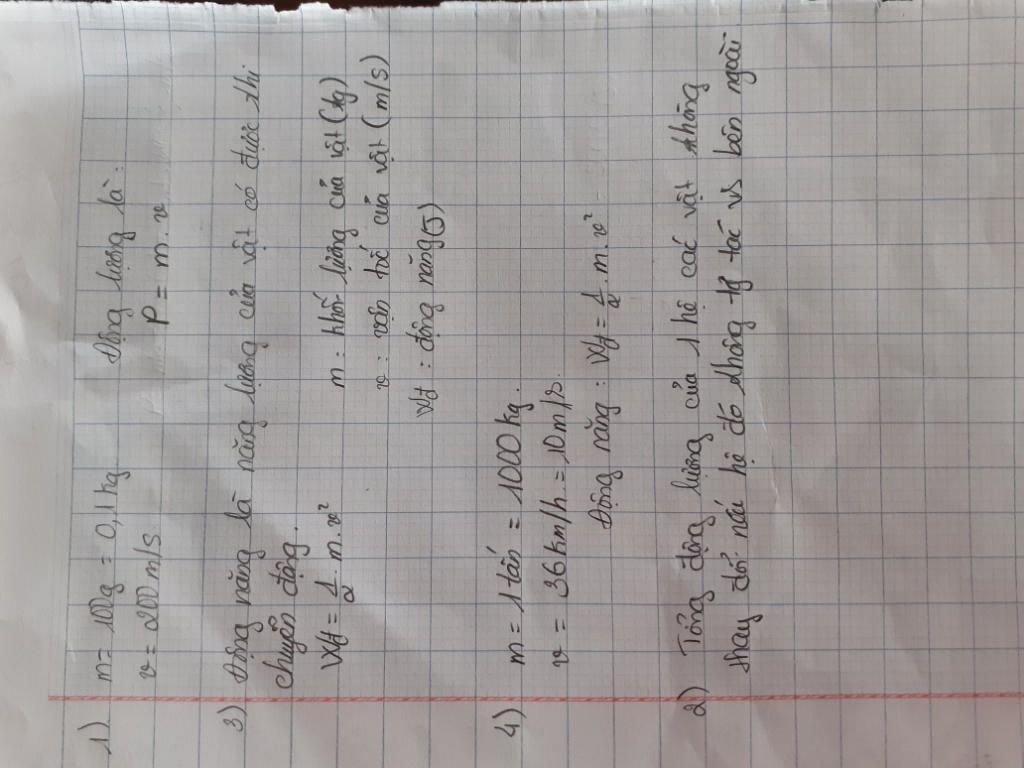 1) m = 100g = 0,1kg Động lượng là:
v = 200m/s P = m.v
3) Động năng là năng lượng của vật có được khi
chuyển động.
Wđ = 1/2 . m . v² m : khối lượng của vật (kg)
v : vận tốc của vật (m/s)
Wđ : động năng (J)
4) m = 1 tấn = 1000kg.
v = 36km/h = 10m/s.
Động năng : Wđ = 1/2 . m . v²
2) Tổng động lượng của 1 hệ các vật không
thay đổi nếu hệ đó không tg tác vs bên ngoài